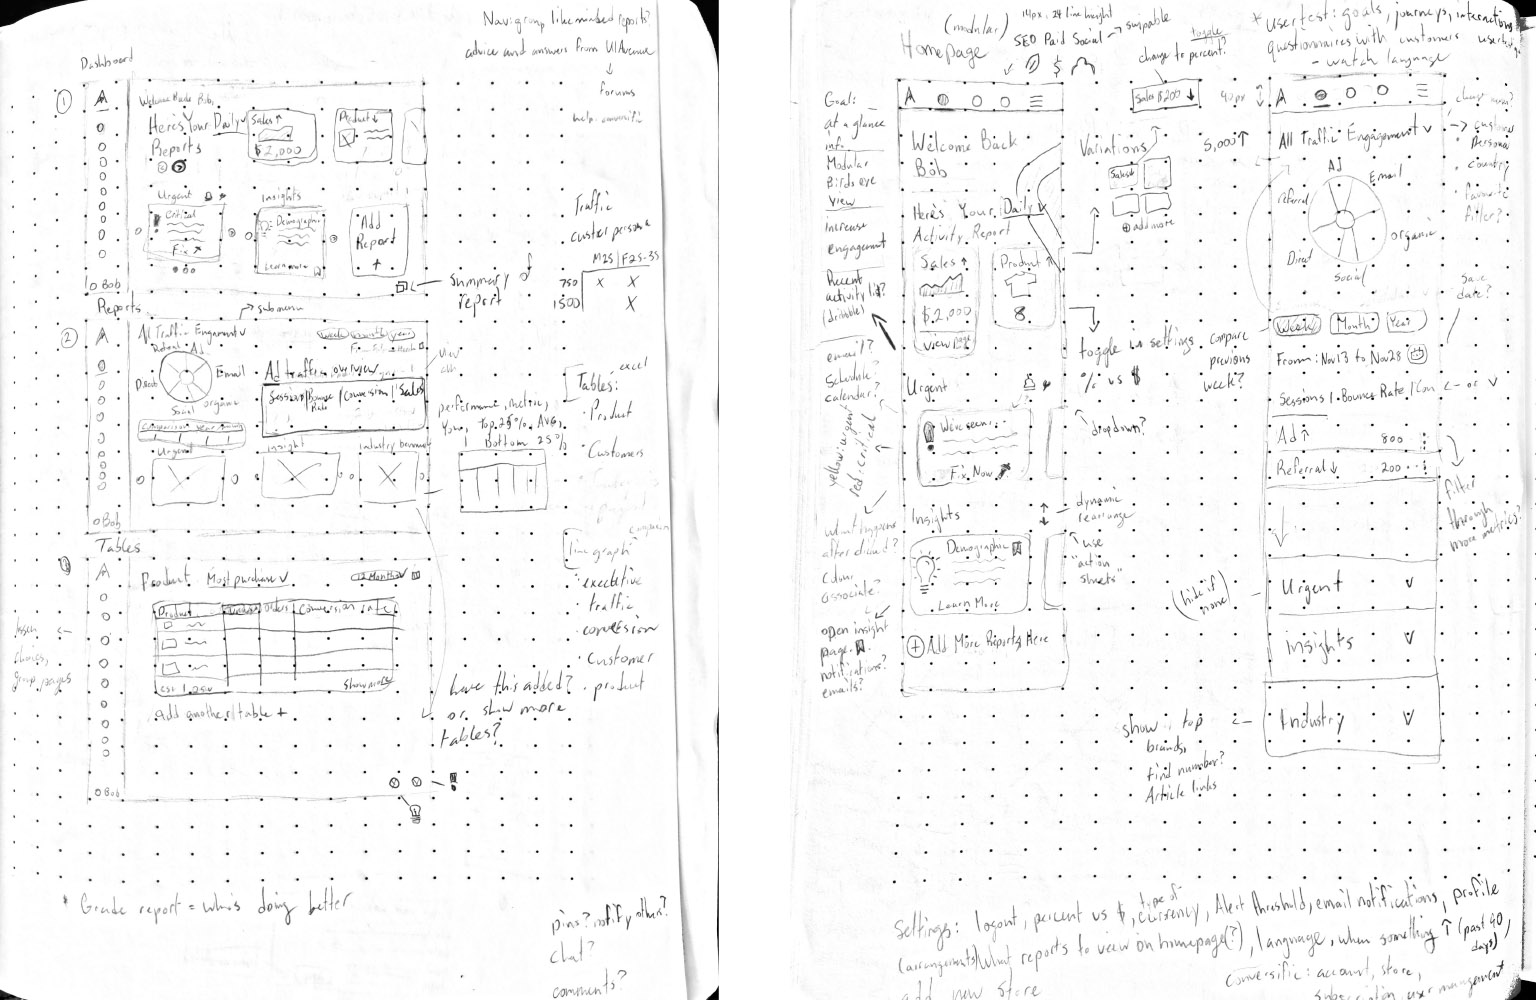 Nav: group likeminded reports?
advice and answers from
forums
Dashboard
1
A
Welcome Back Bob,
Here's Your Daily
Reports
Sales ↑
$2,000
Product ↓
Urgent
Critical
Fix ↗
Insights
Demographic
Learn more
Add
Report
+
Bob
summary
report
Traffic
M25 | F25-35
750 X X
1500 X
Reports
submenu
2
A
All Traffic Engagement v
Referral
Ad
Email
Direct
Social
organic
week
month
year
Ad traffic overview
Session | Bounce Rate | Conversion | Sales
Urgent
insight
industry
Bob
performance, metric,
You, top 25%, Avg,
Bottom 25%
excel
Tables:
· Product
· Customers
line graph
· executive
· traffic
· conversion
· customer
· product
Tables
A
Product Most purchase v
12 Months v
Product
Conversion rate
show more
add another table +
Bob
choices,
group pages
have this added?
or show more
tables?
* Grade report = who's doing better
pins? notify others?
chat?
comments?
(modular)
Homepage
14px, 24 line height
SEO Paid Social → swipable
$
toggle
change to percent?
Sales $200 ↓
40px
* usertest: goals, journeys, interactions
questionnaires with customers
- watch language
Goal:
at a glance
info.
Modular
Birds eye
view
increase
engagement
Recent
activity list?
(dribbble)
email?
schedule?
calendar?
yellow: urgent
red: critical
what happens
after
Colour
associate?
open insight
page.
notifications?
emails?
A
Welcome Back
Bob
Here's Your Daily v
Activity Report
Sales ↑
$2,000
view page
Product ↑
8
Urgent
We've seen..
Fix Now ↗
Insights
Demographic
Learn More
+ Add More Reports Here
Variations
Sales
+ add more
5,000 ↑
toggle in settings
% vs $
dropdown?
compare
previous
week?
dynamic
rearrange
use
"action
sheets"
(hide if
none)
A
All Traffic Engagement v
Ad
Email
referral
organic
Direct
Social
persona
country
favourite
filter?
save
date?
Week
Month
Year
From: Nov 13 to Nov 28
Sessions | Bounce Rate | Con ← or v
Ad ↑ 800
Referral ↓ 200
filter
through
more metrics?
Urgent v
insights v
Industry v
show top
brands,
find number?
Article links
Settings: logout, percent vs $, type of currency, Alert threshold, email notifications, profile
(arrangements) What reports to view on homepage(?), language, when something ↑ (past 90 days),
add new store
Conversific: account, store,
subscription, user management